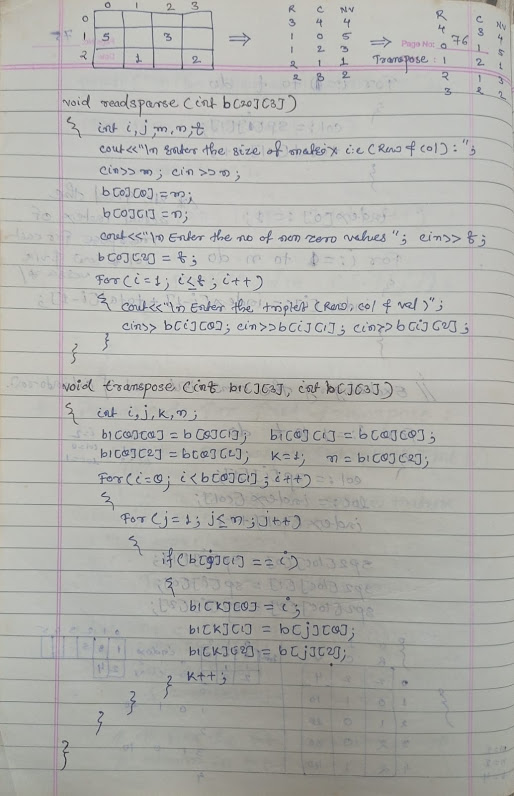 0 1 2 3 R C NV R C NV
0 3 4 4 4 3 4
1 5 3 ⇒ 1 0 5 ⇒ Page No. 76 0 1 5
2 1 2 1 2 3 Transpose : 1 2 1
2 1 1 2 1 3
2 3 2 3 2 2
void readsparse (int b[20][3])
{ int i, j, m, n, t
cout<<"\n Enter the size of matrix i.e (Row & col) : ";
cin>> m; cin >> n;
b[0][0] = m;
b[0][1] = n;
cout<<"\n Enter the no of non zero values"; cin>> t;
b[0][2] = t;
For(i=1; i≤t; i++)
{ cout<<"\n Enter the triplet (Row, col & val)";
cin>> b[i][0]; cin>>b[i][1]; cin>>b[i][2];
}
}
void transpose (int b1[][3], int b[][3])
{ int i, j, k, n;
b1[0][0] = b[0][1]; b1[0][1] = b[0][0];
b1[0][2] = b[0][2]; k=1; n = b1[0][2];
For(i=0; i<b[0][1]; i++)
{
For(j=1; j≤n; j++)
{
if(b[j][1] == i)
{
b1[k][0] = i;
b1[k][1] = b[j][0];
b1[k][2] = b[j][2];
k++;
}
}
}
}